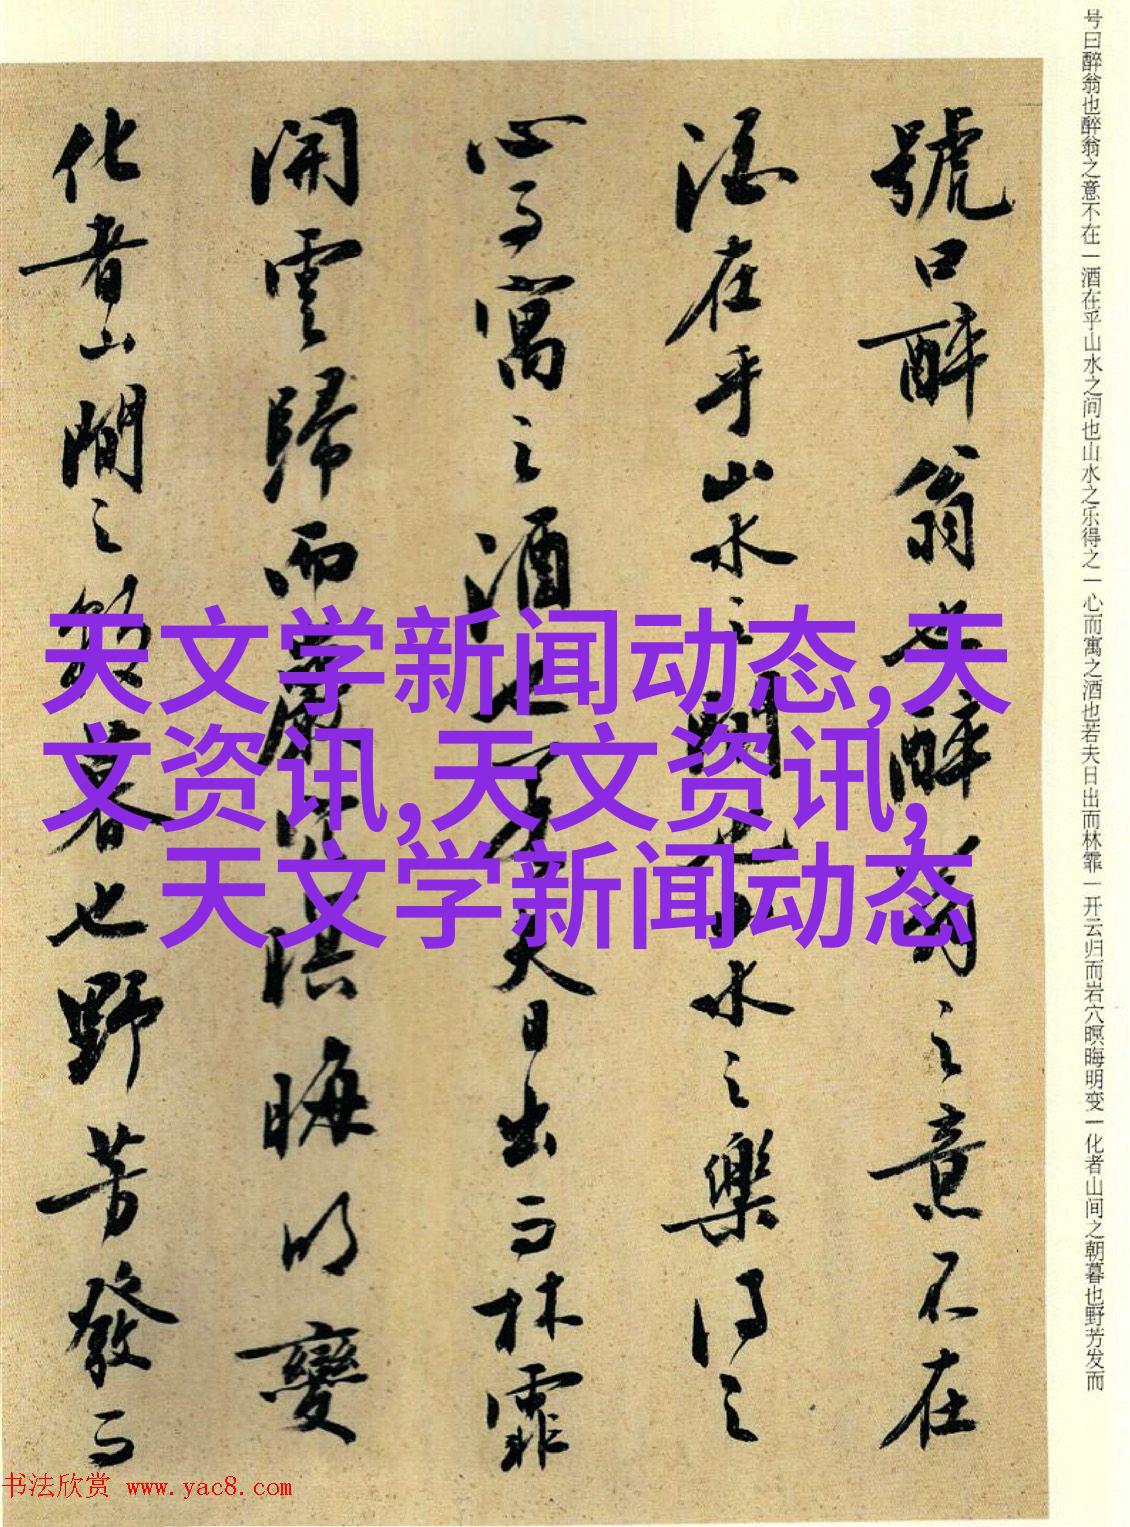 號曰醉翁也醉翁之意不在
酒在乎山水之間也山水之樂得之
心而寓之酒也若夫日出而林霏
開雲歸而巖穴暝晦明變
化者山間之朝暮也野芳發而
号曰醉翁也醉翁之意不在一酒在乎山水之间也山水之乐得之一心而寓之酒也若夫日出而林霏一开云归而岩穴暝晦明变一化者山间之朝暮也野芳发而
天文学新闻动态,天
文资讯,天文资讯,
天文学新闻动态
书法欣赏 www.yac8.com